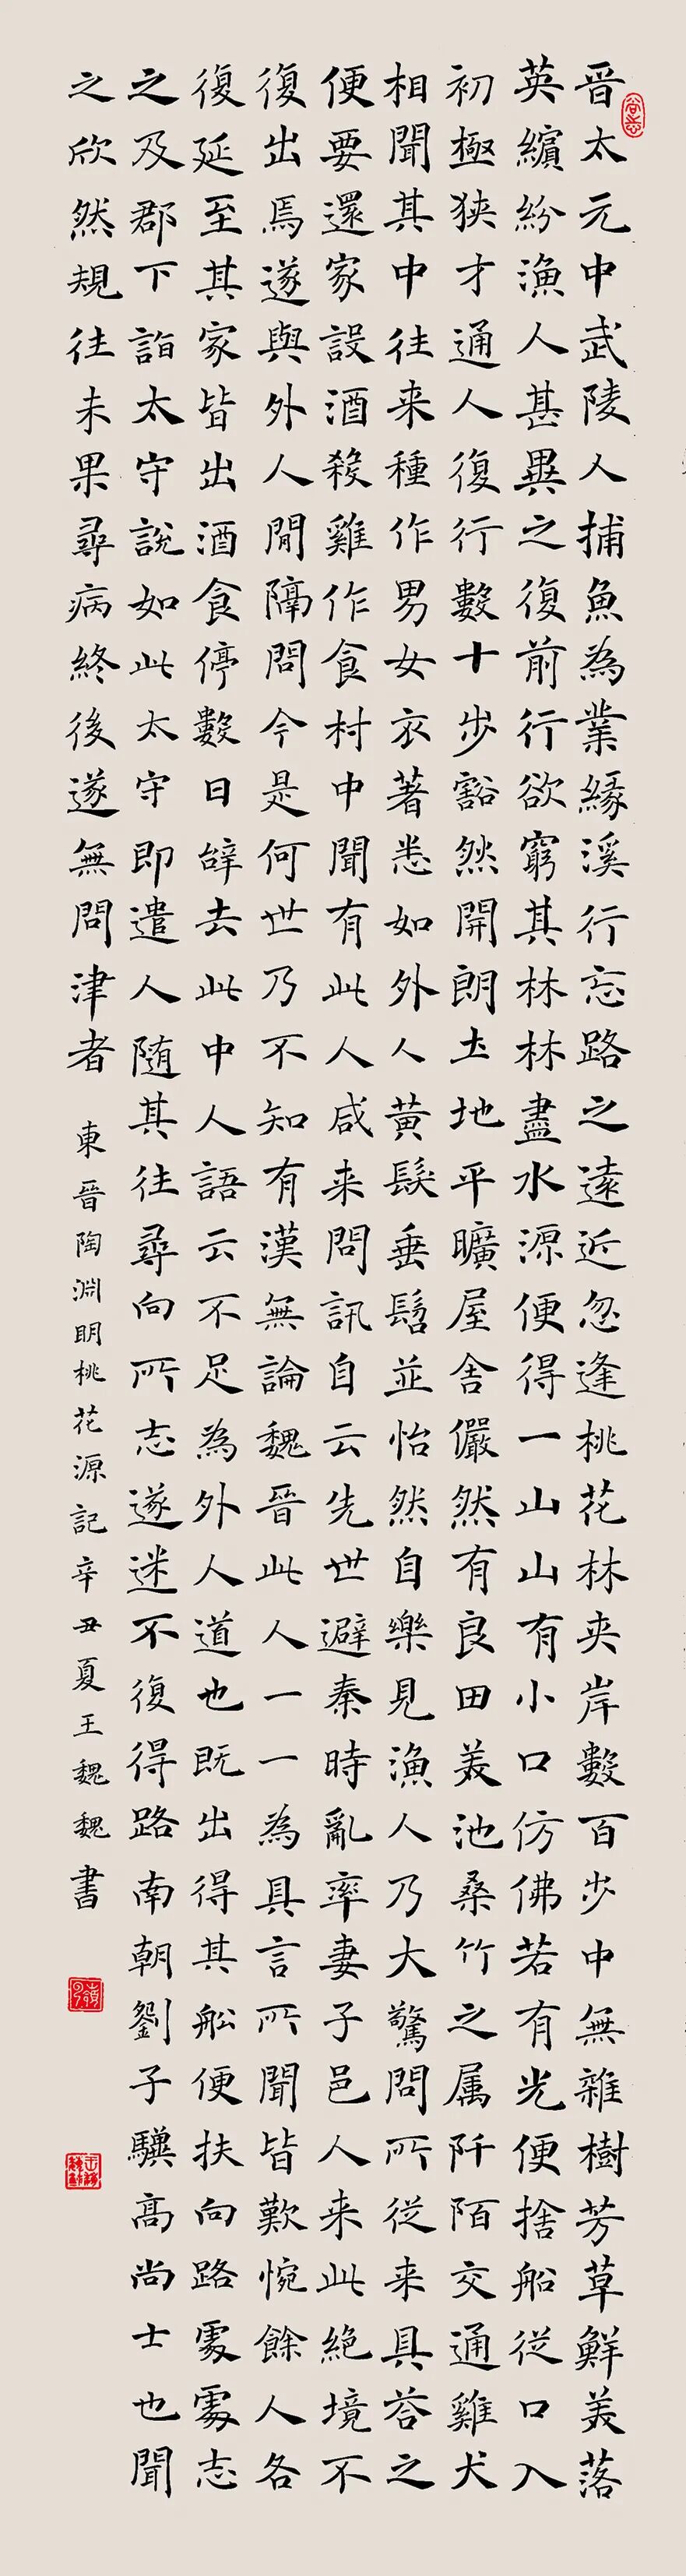 晉太元中武陵人捕魚為業緣溪行忘路之遠近忽逢桃花林夾岸數百步中無雜樹芳草鮮美落
英繽紛漁人甚異之復前行欲窮其林林盡水源便得一山山有小口仿佛若有光便捨船従口入
初極狹才通人復行數十步豁然開朗土地平曠屋舍儼然有良田美池桑竹之属阡陌交通雞犬
相聞其中往来種作男女衣著悉如外人黃髮垂髫並怡然自樂見漁人乃大驚問所従来具答之
便要還家設酒殺雞作食村中聞有此人咸来問訊自云先世避秦時亂率妻子邑人来此絕境不
復出焉遂與外人間隔問今是何世乃不知有漢無論魏晉此人一一為具言所聞皆歎惋餘人各
復延至其家皆出酒食停數日辭去此中人語云不足為外人道也既出得其船便扶向路處處志
之及郡下詣太守說如此太守即遣人随其往尋向所志遂迷不復得路南朝劉子驥高尚士也聞
之欣然規往未果尋病終後遂無問津者 東晉陶淵明桃花源記辛丑夏王魏魏書